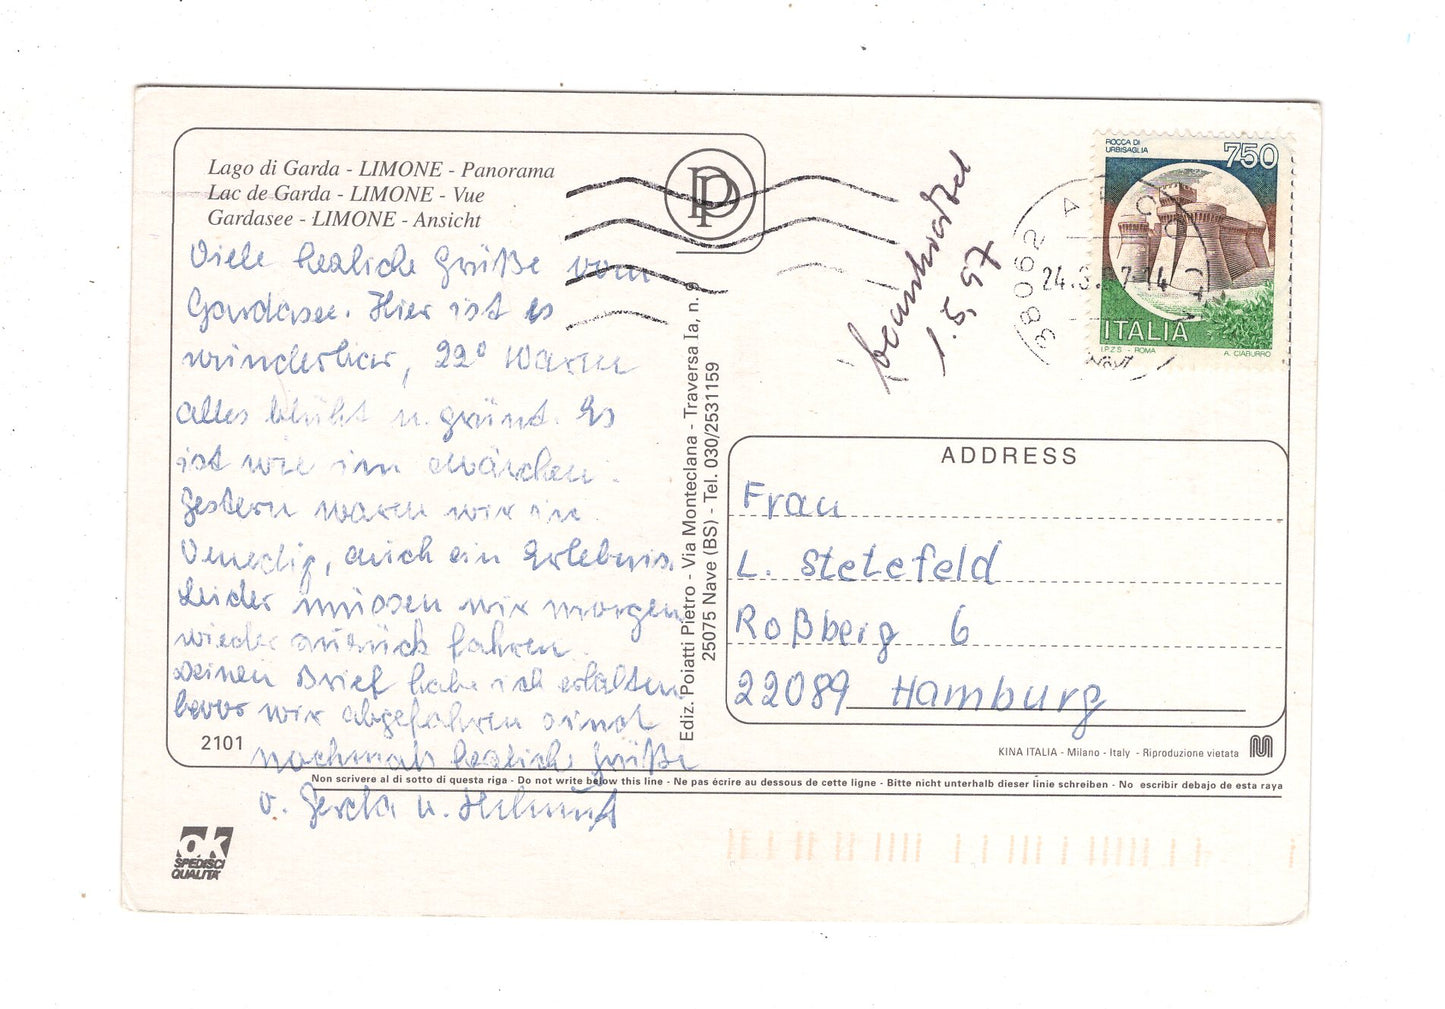 Lago di Garda - LIMONE - Panorama
Lac de Garda - LIMONE - Vue
Gardasee - LIMONE - Ansicht
Viele herzliche Grüße vom
Gardasee. Hier ist es
wunderbar, 22° Warm
alles blüht u. grünt. Es
ist wie im Märchen.
Gestern waren wir in
Venedig, auch ein Erlebnis.
Leider müssen wir morgen
wieder zurück fahren.
Deinen Brief habe ich erhalten
bevor wir abgefahren sind
nochmals herzliche Grüße
v. Gerda u. Helmut
2101
PP
Ediz. Poiatti Pietro - Via Monteclana - Traversa Ia, n. 9
25075 Nave (BS) - Tel. 030/2531159
beantwortet
1.5.97
ROCCA DI
URBISAGLIA
750
ITALIA
I.P.Z.S. - ROMA
A. CIABURRO
38062
24.3.97-14
ADDRESS
Frau
L. Stetefeld
Roßberg 6
22089 Hamburg
KINA ITALIA - Milano - Italy - Riproduzione vietata
Non scrivere al di sotto di questa riga - Do not write below this line - Ne pas écrire au dessous de cette ligne - Bitte nicht unterhalb dieser linie schreiben - No escribir debajo de esta raya
ok
SPEDISCI
QUALITA'